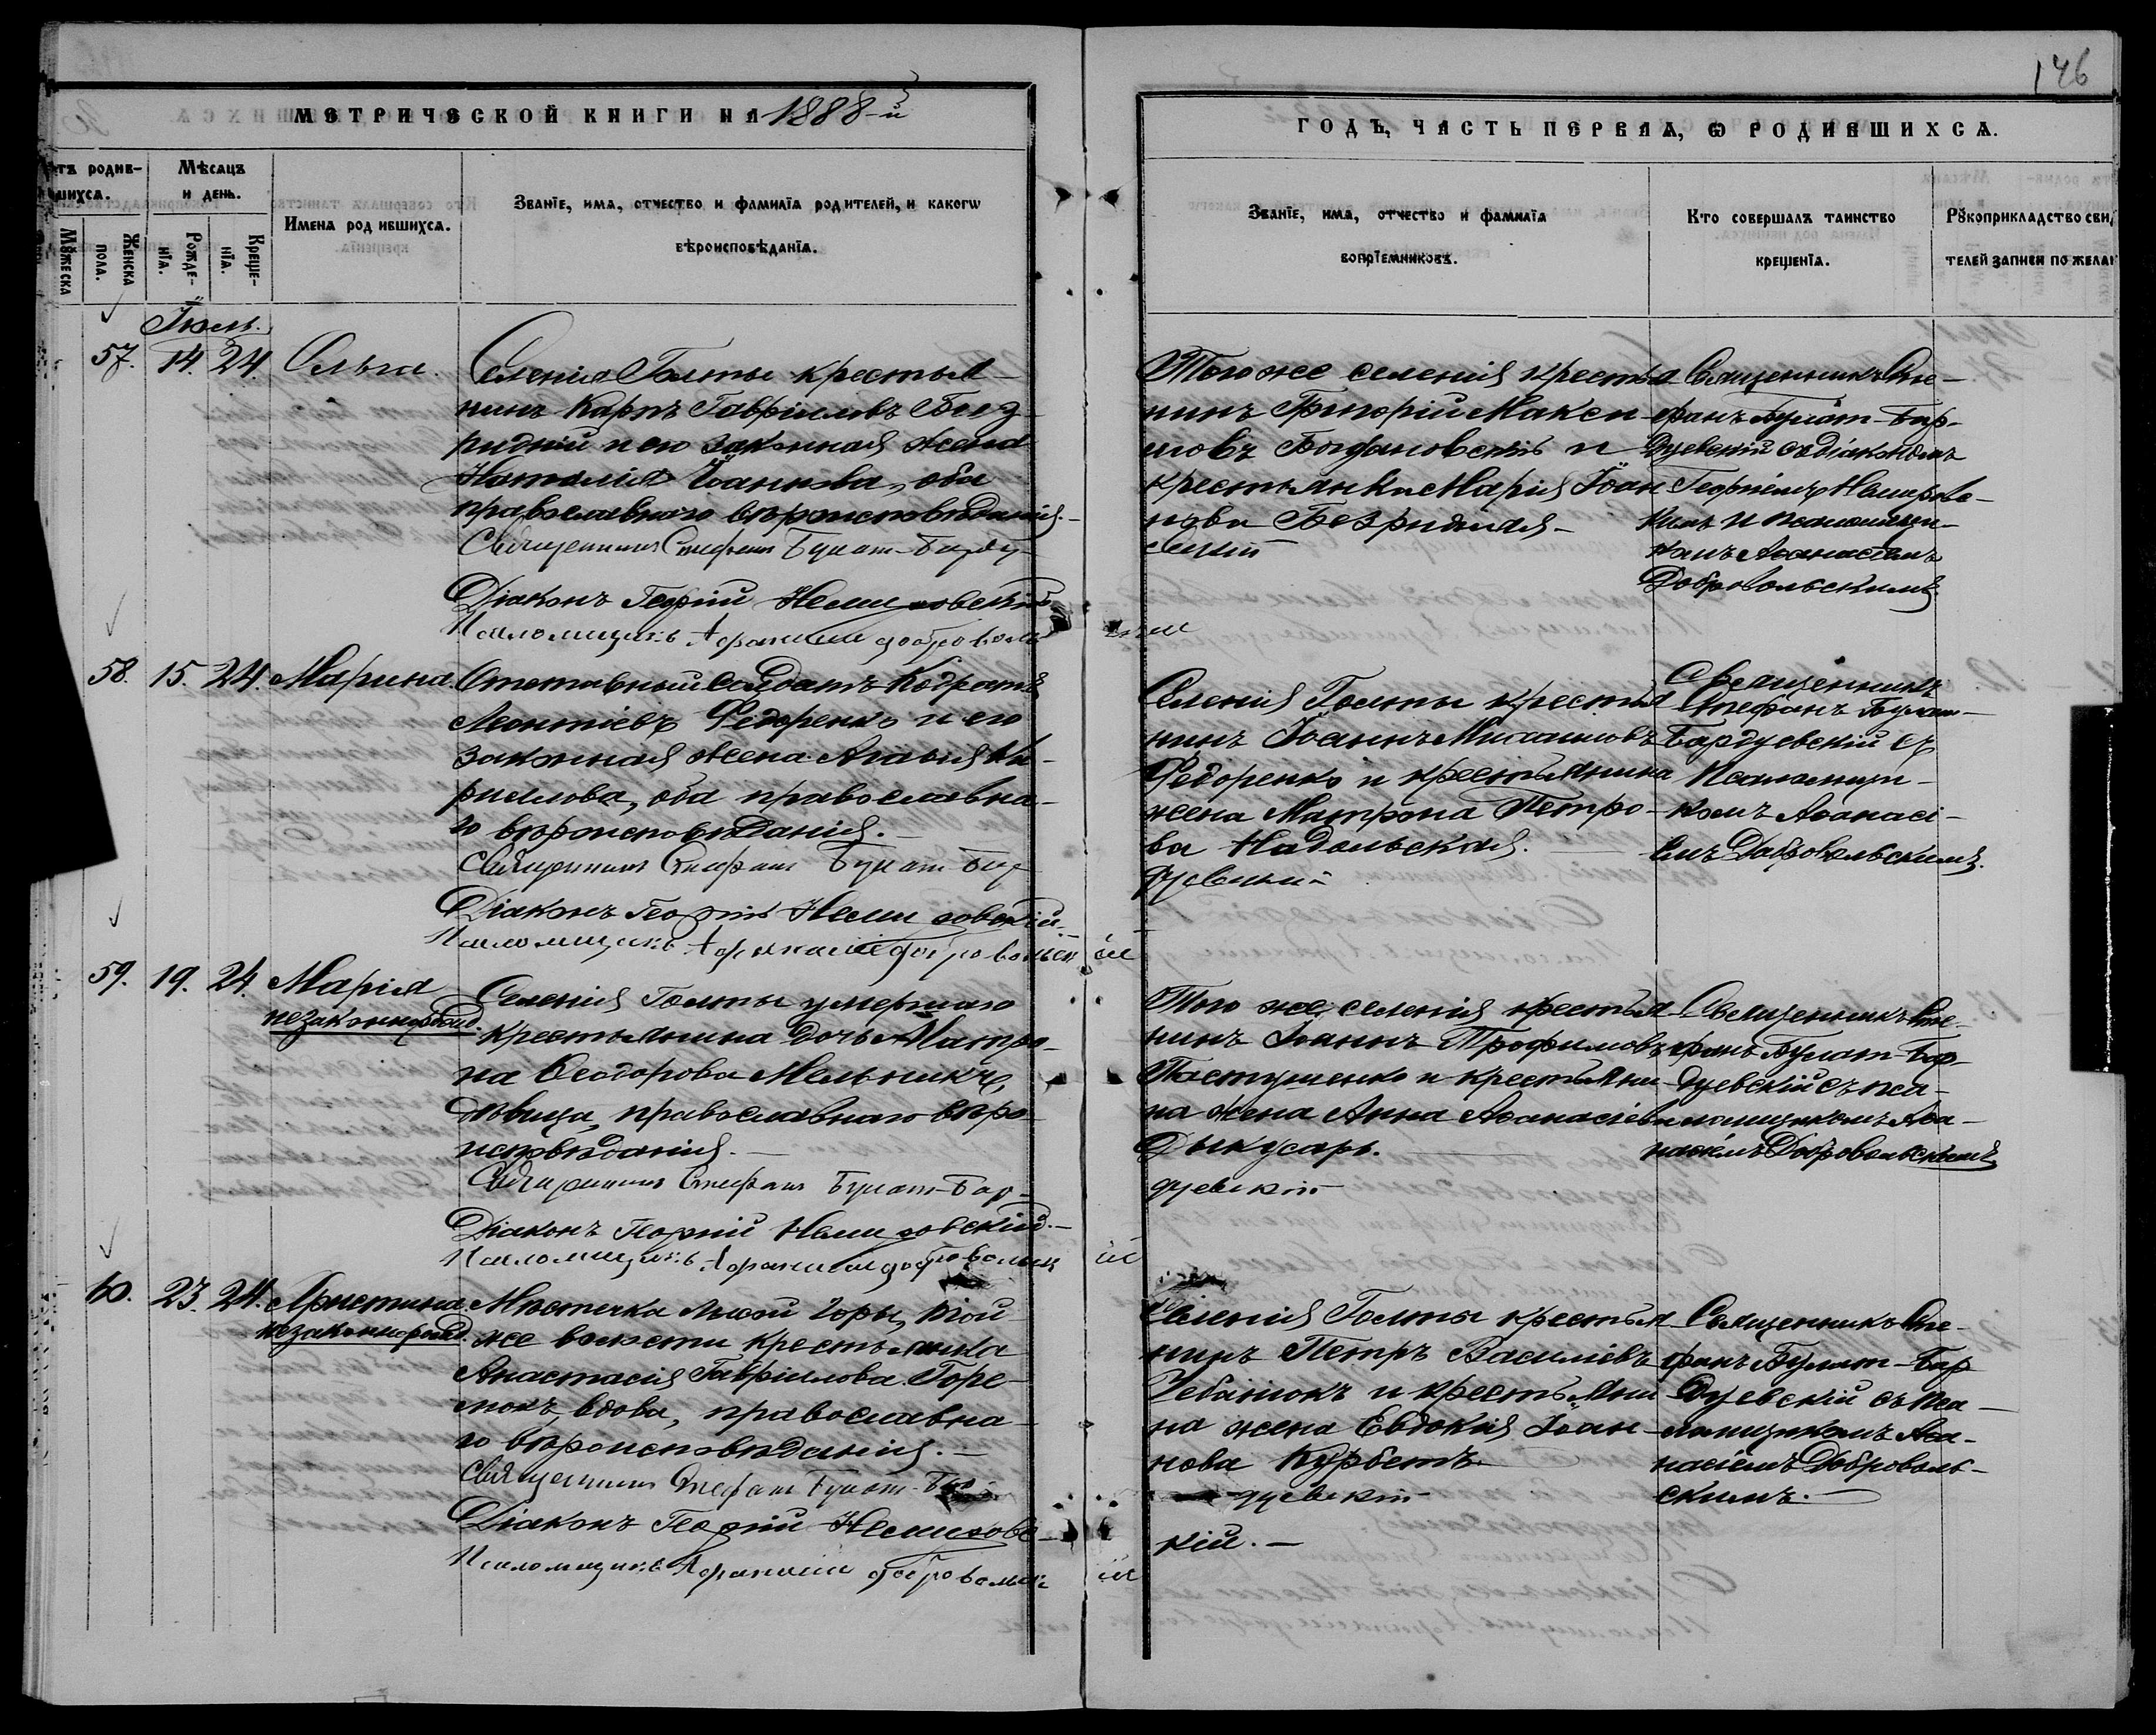 146
МЕТРИЧЕСКОЙ КНИГИ НА 1888-й
ГОДЪ, ЧАСТЬ ПЕРВАЯ, Ѡ РОДИВШИХСЯ.
тъ родив-
шихсѧ.
Мѣсѧцъ
и день.
Мꙋжеска
Женска
пола.
Рожде-
нїѧ.
Креще-
нїѧ.
Имена родившихсѧ.
Званїе, имѧ, отчество и фамилїѧ родителей, и какогѡ
вѣроисповѣданїѧ.
Званїе, имѧ, отчество и фамилїѧ
воспрїемниковъ.
Кто совершалъ таинство
крещенїѧ.
Рꙋкоприкладство свид
телей записи по жела
Іюль.
57. 14. 24. Ольга.
Селенія Голты крестья-
нинъ Карпъ Гавріиловъ Без-
ридній и его законная жена
Наталія Іоаннова, оба
православнаго вѣроисповѣданія.-
Священникъ Стефанъ Булат-Барду-
Діаконъ Георгій Немировскій.
Псаломщикъ Афанасій Доброволь
Того же селенія крестья-
нинъ Григорій Макси-
мовъ Богдановскій и
крестьянка Марія Іоан-
нова Безридная-
евскій
Священникъ Сте-
фанъ Булат-Бар-
дуевскій съ діакономъ
Георгіемъ Немиров-
кимъ и псаломщи-
комъ Аѳанасіемъ
Добровольскимъ.
58. 15. 24. Марина.
Отставный Солдатъ Кодратъ
Леонтіевъ Федоренко и его
законная жена Агафія Ки-
риллова, оба православна-
го вѣроисповѣданія.-
Священникъ Стефанъ Булат-Бар-
Діаконъ Георгій Немировскій.-
Псаломщикъ Афанасій Добровольск ій
Селенія Голты крестья-
нинъ Іоаннъ Михаиловъ
Федоренко и крестьянина
жена Матрона Петро-
ва Надольская.
дуевскій
Священникъ
Стефанъ Булат-
Бардуевскій съ
Псаломщи-
комъ Аѳанасі-
емъ Добровольскимъ.
59. 19. 24. Марія
незаконнорожд.
Селенія Голты умершаго
крестьянина дочь Матро-
на Ѳеодорова Мельникъ,
дѣвица, православнаго вѣро-
исповѣданія.-
Священникъ Стефанъ Булат-Бар-
Діаконъ Георгій Немировскій.-
Псаломщикъ Афанасій Добровольск ій
Того же селенія крестья-
нинъ Іоаннъ Трофимовъ
Пастушенко и крестьяни-
на жена Анна Аѳанасіева
Дикусаръ.
дуевскій
Священникъ Сте-
фанъ Булат-Бар-
дуевскій съ пса-
ломщикомъ Аѳа-
насіемъ Добровольскимъ
60. 23. 24. Христина
незаконнорожд.
Мѣстечка Лысой Горы, той
же волости крестьянка
Анастасія Гавріилова Горе-
мокъ, вдова, православна-
го вѣроисповѣданія.-
Священникъ Стефанъ Булат-Бар
Діаконъ Георгій Немировс-
Псаломщикъ Афанасій Добровольск ій
Селенія Голты крестья-
нинъ Петръ Василіевъ
Чебанюкъ и крестьяни-
на жена Евдокія Іоан-
нова Курбетъ
дуевскій
кій.-
Священникъ Сте-
фанъ Булат-Бар
дуевскій съ пса-
ломщикомъ Аѳа-
насіемъ Доброволь-
скимъ.